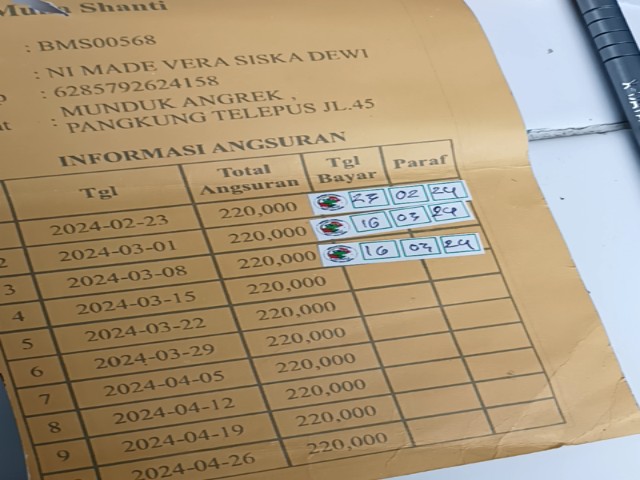 Shanti
: BMS00568
: NI MADE VERA SISKA DEWI
: 6285792624158
: MUNDUK ANGREK ,
PANGKUNG TELEPUS JL.45
INFORMASI ANGSURAN
Tgl Total Angsuran Tgl Bayar Paraf
2024-02-23 220,000 23 02 24
2 2024-03-01 220,000 16 03 24
3 2024-03-08 220,000 16 03 24
4 2024-03-15 220,000
5 2024-03-22 220,000
6 2024-03-29 220,000
7 2024-04-05 220,000
8 2024-04-12 220,000
9 2024-04-19 220,000
2024-04-26 220,000